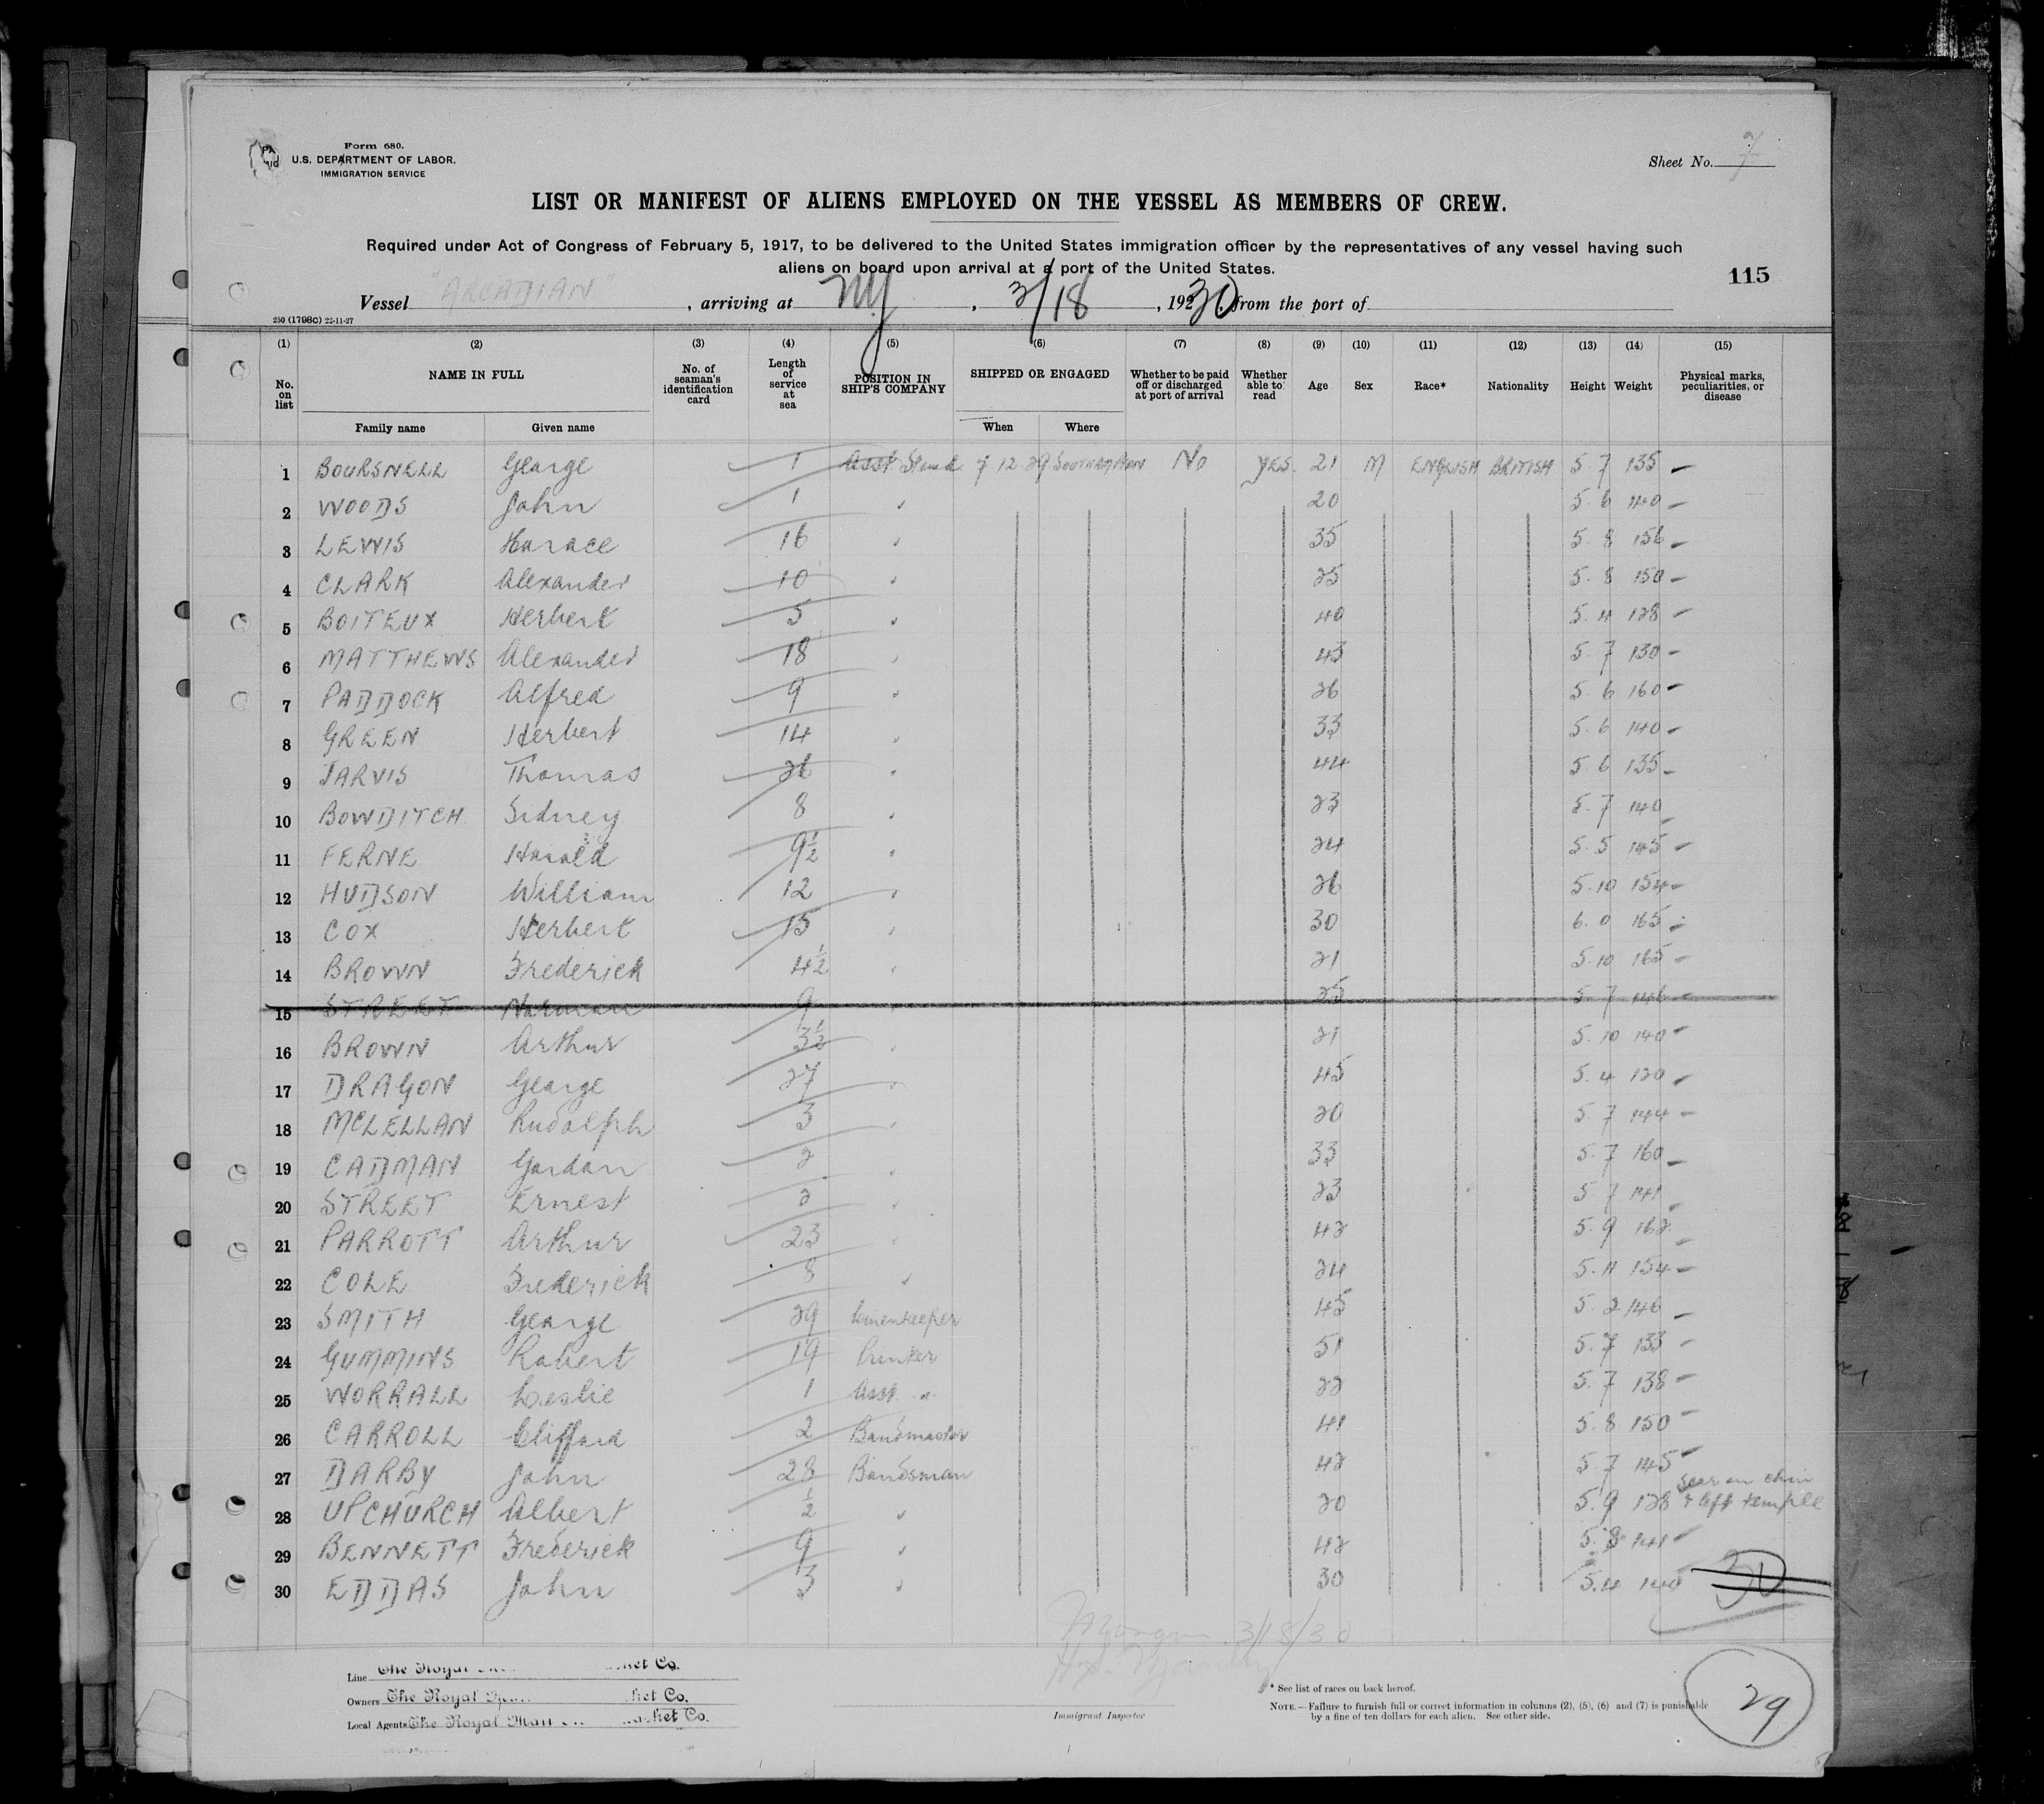 Form 680.
U.S. DEPARTMENT OF LABOR.
IMMIGRATION SERVICE
Sheet No. 7
LIST OR MANIFEST OF ALIENS EMPLOYED ON THE VESSEL AS MEMBERS OF CREW.
Required under Act of Congress of February 5, 1917, to be delivered to the United States immigration officer by the representatives of any vessel having such
aliens on board upon arrival at a port of the United States.
115
Vessel "ARCADIAN", arriving at NY, 3/18, 1930 from the port of
250 (1798c) 22-11-27
(1) (2) (3) (4) (5) (6) (7) (8) (9) (10) (11) (12) (13) (14) (15)
No. on list NAME IN FULL Family name Given name No. of seaman's identification card Length of service at sea POSITION IN SHIP'S COMPANY SHIPPED OR ENGAGED When Where Whether to be paid off or discharged at port of arrival Whether able to read Age Sex Race* Nationality Height Weight Physical marks, peculiarities, or disease
1 BOURSNELL George 1 Asst. Stewd. 7 12 29 SOUTHAMPTON No YES. 21 M ENGLISH BRITISH 5 7 135 –
2 WOODS John 1 " 20 5. 6 140 –
3 LEWIS Horace 16 " 35 5. 8 156 –
4 CLARK Alexander 10 " 25 5. 8 150 –
5 BOITEUX Herbert 5 " 40 5. 4 128 –
6 MATTHEWS Alexander 18 " 43 5. 7 130 –
7 PADDOCK Alfred 9 " 26 5 6 160 –
8 GREEN Herbert 14 " 33 5. 6 140 –
9 JARVIS Thomas 26 " 44 5 6 135 –
10 BOWDITCH Sidney 8 " 23 5. 7 140 –
11 FERNE Harold 9½ " 24 5. 5 145 –
12 HUDSON William 12 " 26 5. 10 154 –
13 COX Herbert 15 " 30 6. 0 165 –
14 BROWN Frederick 4½ " 21 5. 10 165 –
15 STREET Norman 9 " 25 5. 7 146 –
16 BROWN Arthur 3½ " 21 5. 10 140 –
17 DRAGON George 27 " 45 5. 4 120 –
18 MCLELLAN Rudolph 3 " 20 5. 7 144 –
19 CADMAN Gordon 2 " 33 5. 7 160 –
20 STREET Ernest 2 " 23 5. 7 141 –
21 PARROTT Arthur 23 " 42 5. 9 162 –
22 COLE Frederick 8 " 24 5. 11 154 –
23 SMITH George 29 Linenkeeper 45 5 2 146 –
24 GUMMINS Robert 19 Printer 51 5. 7 133 –
25 WORRALL Leslie 1 Asst. " 22 5. 7 138 –
26 CARROLL Clifford 2 Bandmaster 41 5. 8 150 –
27 DARBY John 28 Bandsman 42 5. 7 145 –
28 UPCHURCH Albert ½ " 20 5. 9 128 Scar on chin & left temple
29 BENNETT Frederick 9 " 42 5. 8 141 –
30 EDDAS John 3 " 30 5. 4 140 –
30
3/18/30
Line The Royal ket Co.
Owners The Royal ket Co.
Local Agents The Royal Mail ket Co.
Immigrant Inspector
* See list of races on back hereof.
NOTE.—Failure to furnish full or correct information in columns (2), (5), (6) and (7) is punishable
by a fine of ten dollars for each alien. See other side.
29